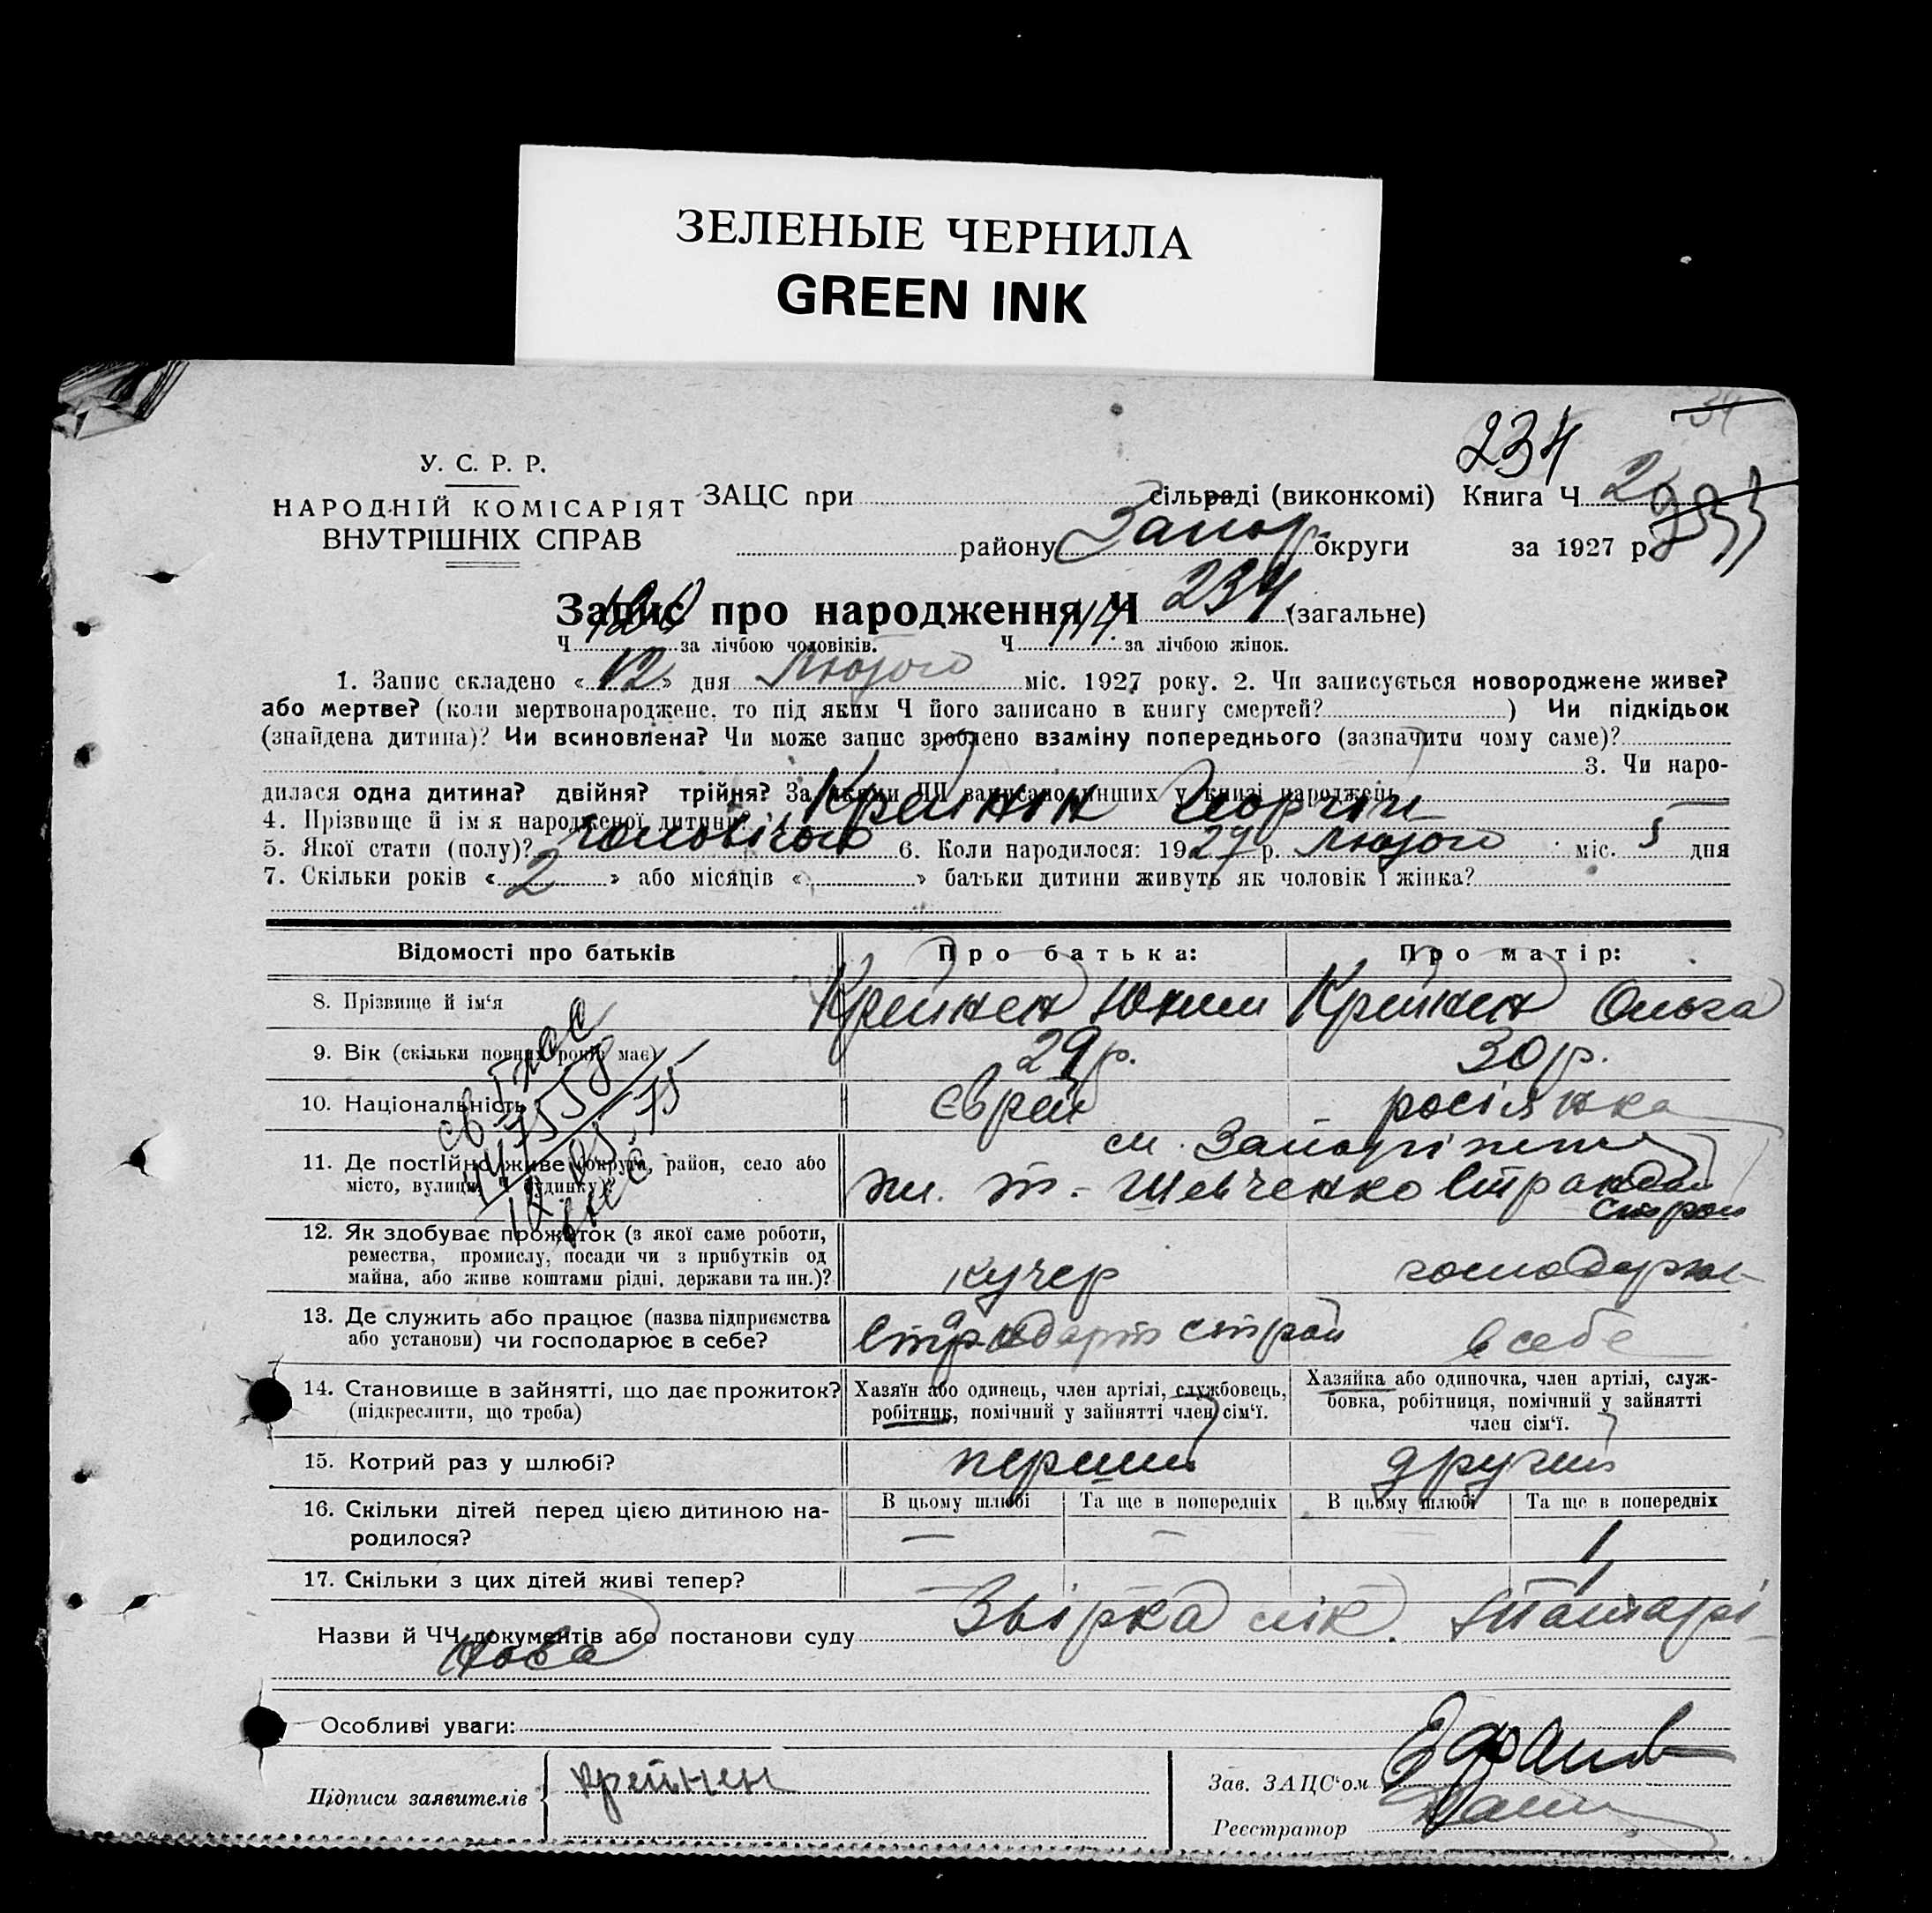 ЗЕЛЕНЫЕ ЧЕРНИЛА
GREEN INK
34
234
У. С. Р. Р.
НАРОДНІЙ КОМІСАРІЯТ
ВНУТРІШНІХ СПРАВ
ЗАЦС при сільраді (виконкомі) Книга Ч 2
району Запор округи за 1927 р.
Запис про народження Ч 234 (загальне)
Ч 120 за лічбою чоловіків. Ч 114 за лічбою жінок.
1. Запис складено «12» дня Лютого міс. 1927 року. 2. Чи записується новороджене живе?
або мертве? (коли мертвонароджене, то під яким Ч його записано в книгу смертей? ) Чи підкідьок
(знайдена дитина)? Чи всиновлена? Чи може запис зроблено взаміну попереднього (зазначити чому саме)?
3. Чи наро-
дилася одна дитина? двійня? трійня? За якими ЧЧ записано инших у книзі народжень
4. Прізвище й ім'я народженої дитини: Крейнін Георгій
5. Якої стати (полу)? чоловічого 6. Коли народилося: 1927 р. Лютого міс. 5 дня
7. Скільки років «2» або місяців « » батьки дитини живуть як чоловік і жінка?
Відомості про батьків Про батька: Про матір:
8. Прізвище й ім'я Крейнен Юхим Крейнен Ольга
9. Вік (скільки повних років має) 29 р. 30 р.
10. Національність Єврей росіянка
11. Де постійно живе (округа, район, село або
місто, вулиця, Ч будинку)?
м. Запоріжжя
Шевченко
12. Як здобуває прожиток (з якої саме роботи,
ремества, промислу, посади чи з прибутків од
майна, або живе коштами рідні, держави та ин.)?
кучер господарює
13. Де служить або працює (назва підприємства
або установи) чи господарює в себе?
строй в себе
14. Становище в зайнятті, що дає прожиток?
(підкреслити, що треба)
Хазяїн або одинець, член артілі, службовець,
робітник, помічний у зайнятті член сім'ї.
Хазяйка або одиночка, член артілі, служ-
бовка, робітниця, помічний у зайнятті
член сім'ї.
15. Котрий раз у шлюбі? перший другий
16. Скільки дітей перед цією дитиною на-
родилося?
В цьому шлюбі Та ще в попередніх В цьому шлюбі Та ще в попередніх
— — 1
17. Скільки з цих дітей живі тепер? — 1
Назви й ЧЧ документів або постанови суду Звірка лік.
Особливі уваги:
Підписи заявителів крейнен
Зав. ЗАЦС'ом
Реєстратор